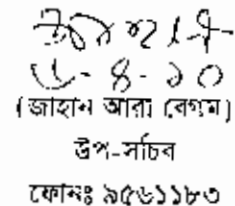 ৬-৪-১০
(জাহান আরা বেগম)
উপ-সচিব
ফোনঃ ৯৫৬১১৮৩